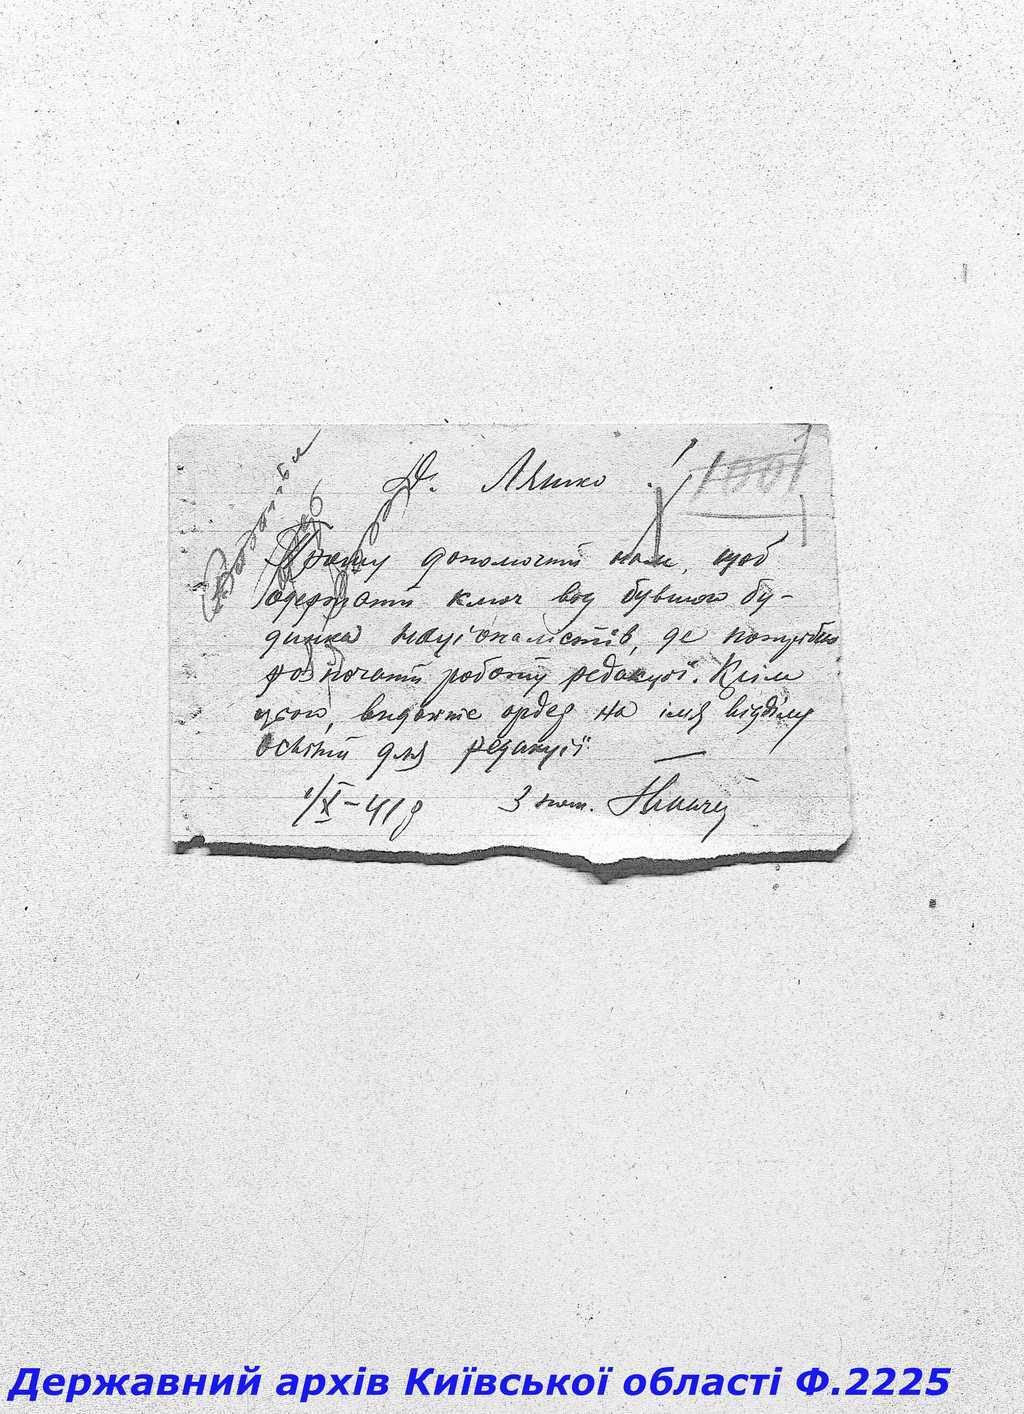 Д. Ляшко!
1001
Прошу допомогти нам, щоб
одержати ключ від бувшого бу-
динка націоналістів, де потрібно
розпочати роботу редакції. Крім
цього, видайте ордер на імя відділу
освіти для редакції.
1/X-41 р З пош.
Державний архів Київської області Ф.2225